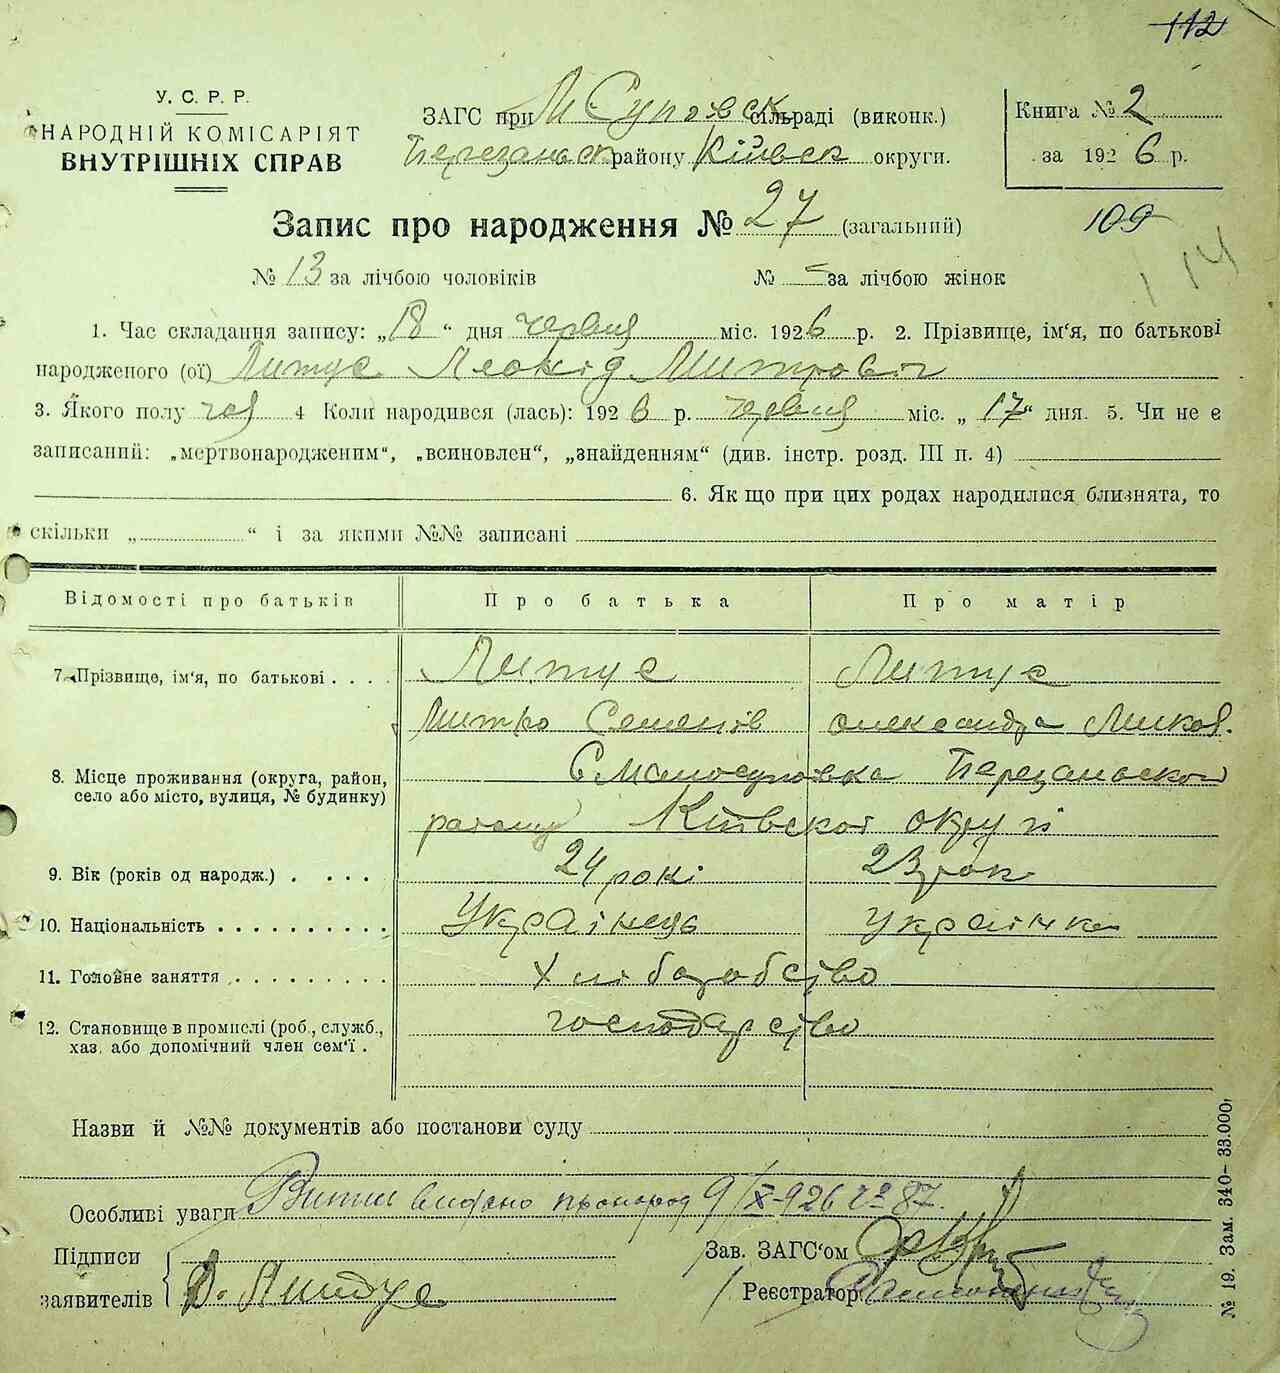 112
У. С. Р. Р.
НАРОДНІЙ КОМІСАРІЯТ
ВНУТРІШНІХ СПРАВ
ЗАГС при М. Суповск сільраді (виконк.)
Березанськ району Київск округи.
Книга № 2
за 1926 р.
Запис про народження № 27 (загальний)
109
114
№ 13 за лічбою чоловіків № – за лічбою жінок
1. Час складання запису: „18“ дня червня міс. 1926 р. 2. Прізвище, ім'я, по батькові
народженого (ої) Литус Леонід Митрович
3. Якого полу чол 4 Коли народився (лась): 1926 р. червня міс. „17“ дня. 5. Чи не є
записаний: „мертвонародженим“, „всиновлен“, „знайденням“ (див. інстр. розд. III п. 4)
6. Як що при цих родах народилися близнята, то
скільки „ “ і за якими №№ записані
Відомості про батьків Про батька Про матір
7. Прізвище, ім'я, по батькові . . . . Литус Литус
Митро Семенів Олександра Миков.
8. Місце проживання (округа, район, С Малосуповка Березанської
село або місто, вулиця, № будинку)
району Київскої округи
9. Вік (років од народж.) . . . . 24 рокі 23 рок
10. Національність . . . . . . . . . . Українець Українка
11. Головне заняття . . . . . . . . . Хліборобство
12. Становище в промислі (роб., служб., господарство
хаз. або допомічний член сем'ї .
Назви й №№ документів або постанови суду
Особливі уваги Витяг видано про народ 9/X-926 № 87.
Підписи
заявителів Д. Литус
Зав. ЗАГС'ом
Реєстратор
№ 19. Зам. 340– 33.000.